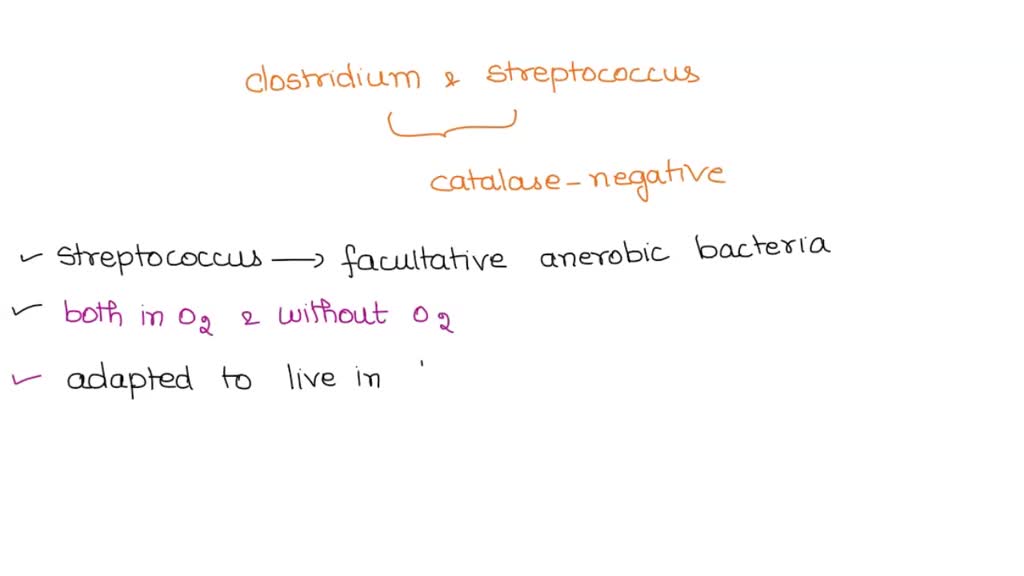 clostridium & streptococcus
catalase-negative
✓ streptococcus → facultative anerobic bacteria
✓ both in O₂ & without O₂
✓ adapted to live in '